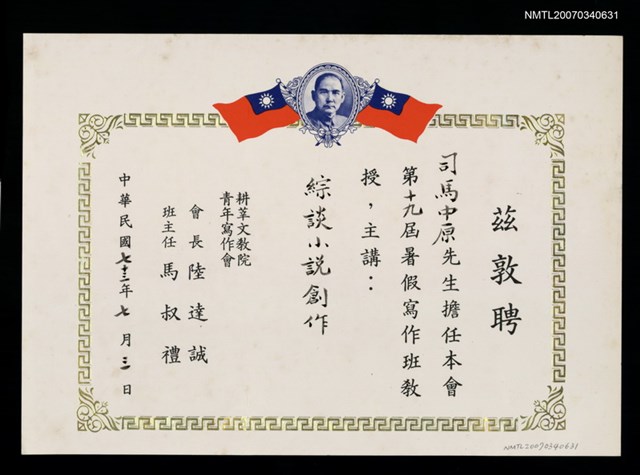 NMTL20070340631
茲敦聘
司馬中原先生擔任本會
第十九屆暑假寫作班教
授，主講：
綜談小說創作
耕莘文教院
青年寫作會
會長陸達誠
班主任馬叔禮
中華民國七十三年七月三日
NMTL20070340631